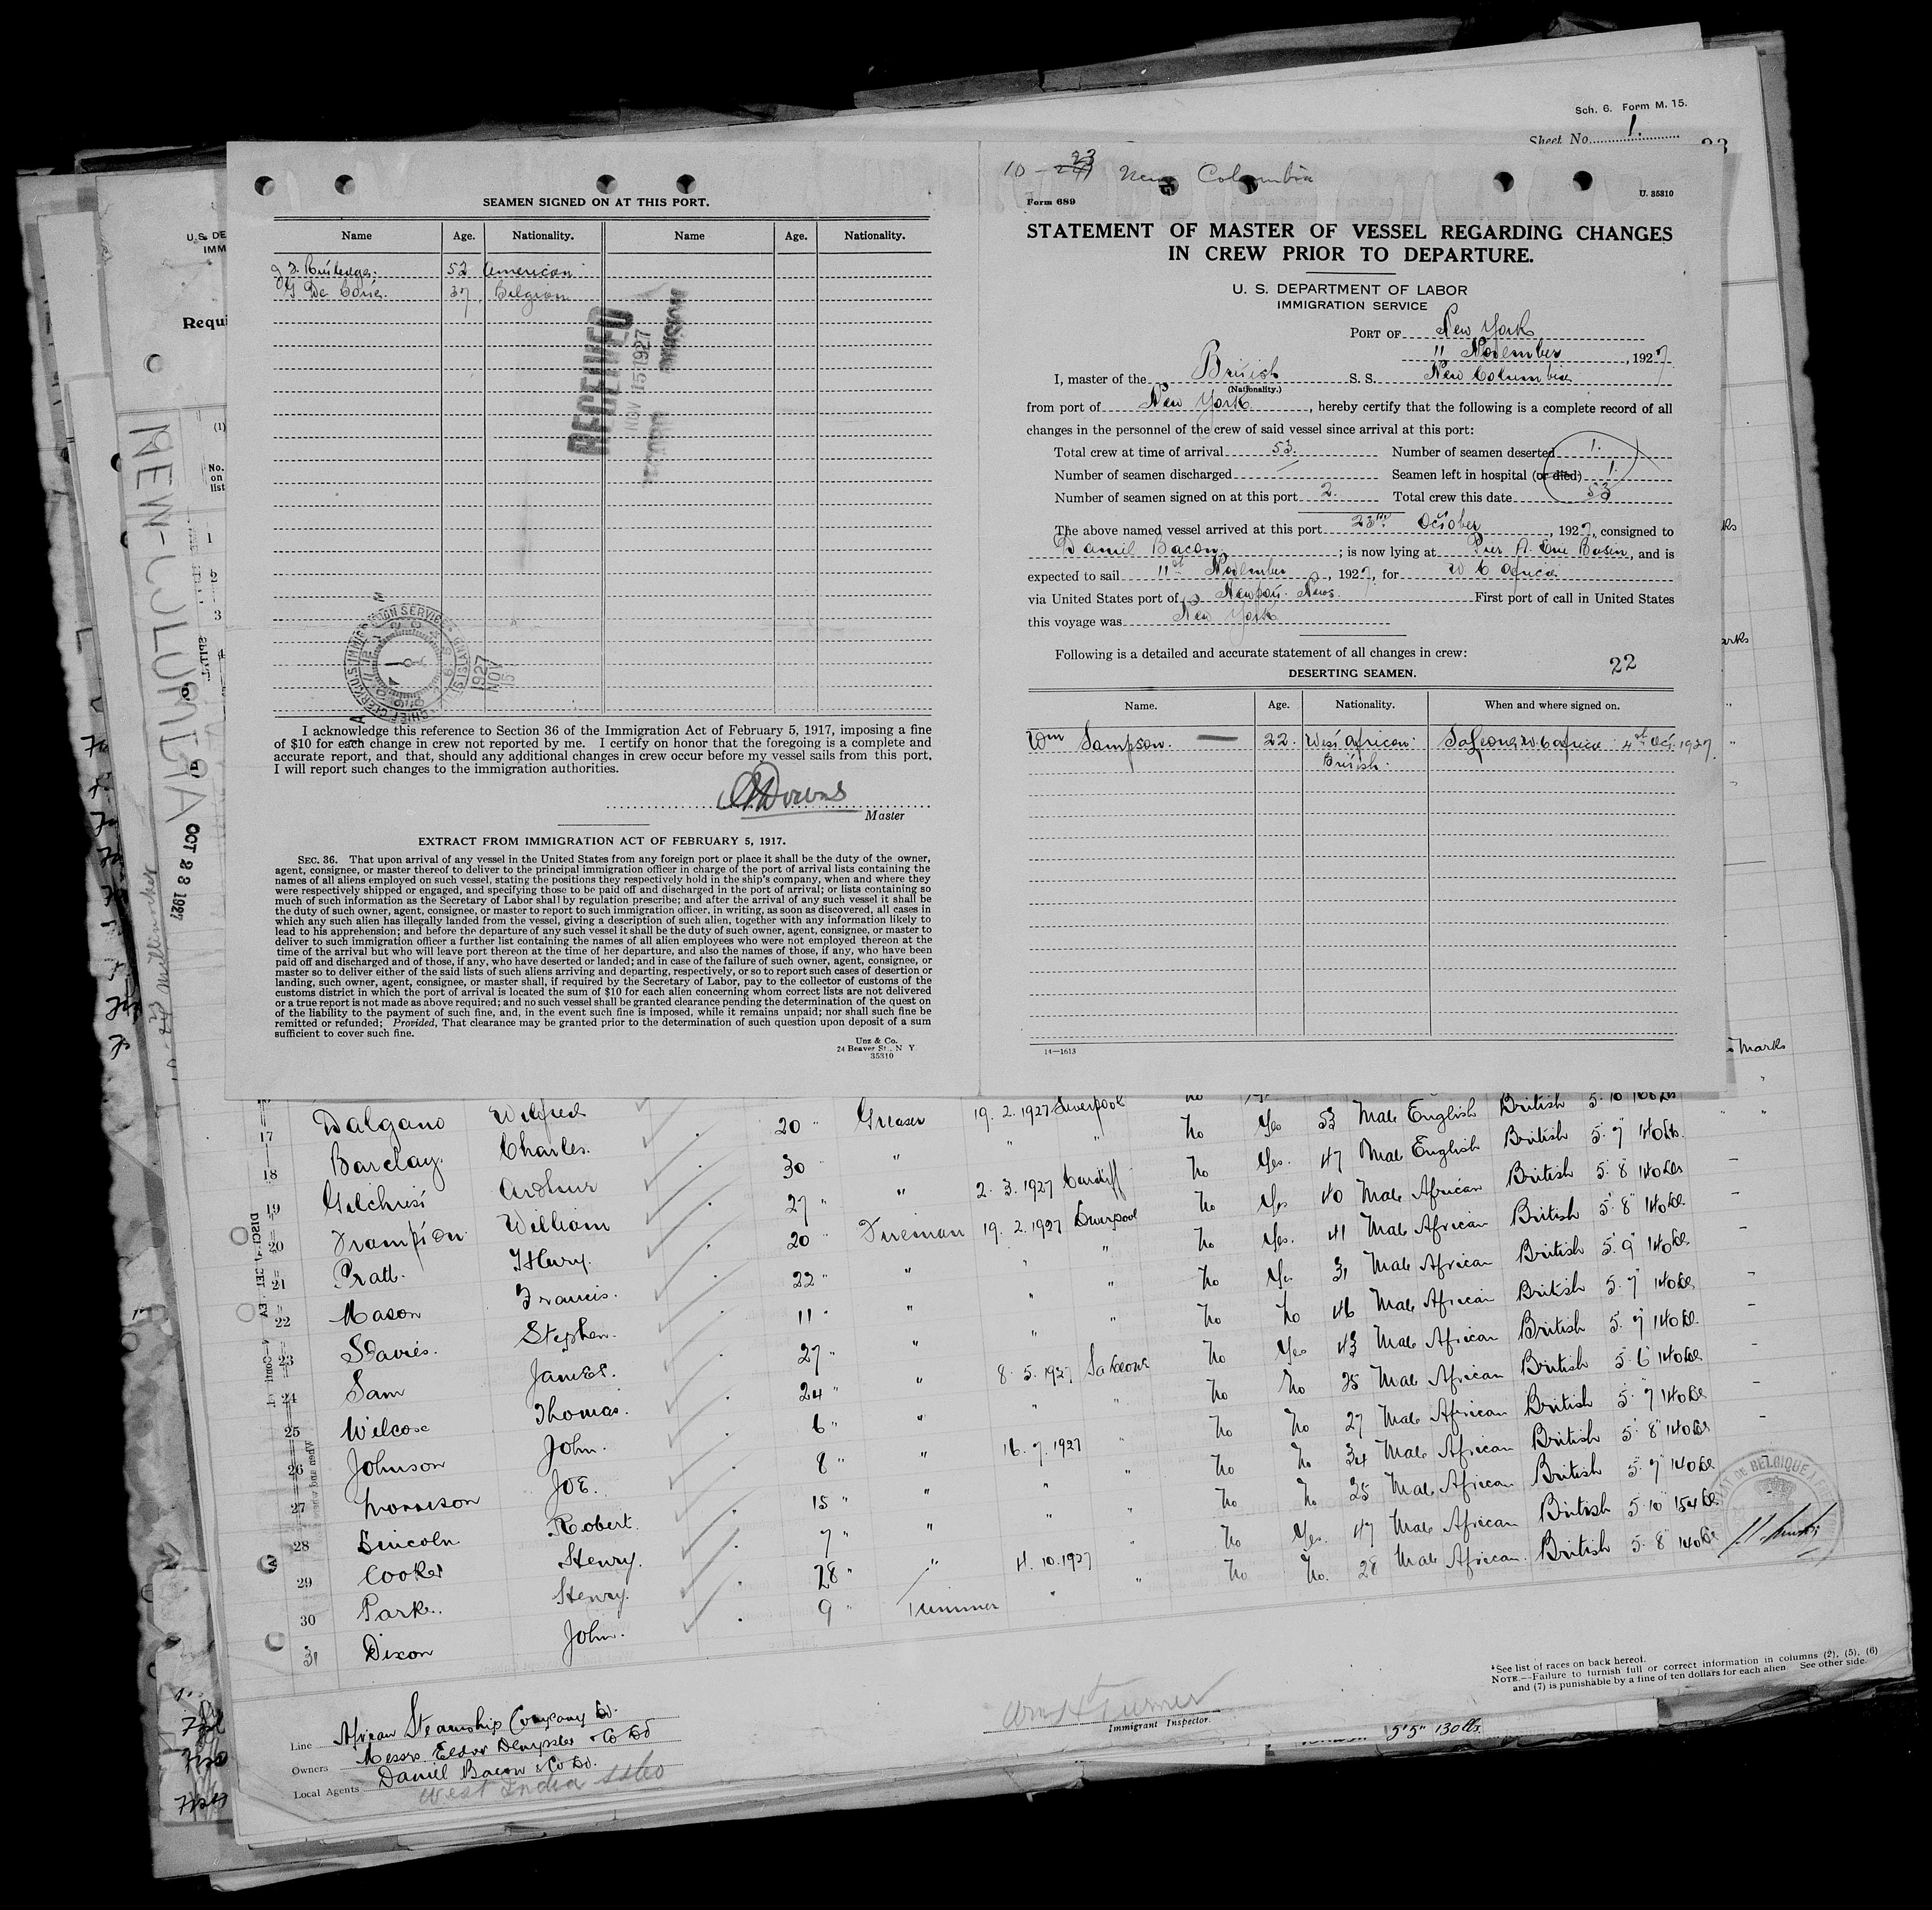 Sch. 6. Form M. 15.
Sheet No. 1.
SEAMEN SIGNED ON AT THIS PORT.
Name Age. Nationality. Name Age. Nationality.
52 American
37 Belgian
RECEIVED
NOV 15 1927
RECORD DIVISION
1927
NOV
15
I acknowledge this reference to Section 36 of the Immigration Act of February 5, 1917, imposing a fine
of $10 for each change in crew not reported by me. I certify on honor that the foregoing is a complete and
accurate report, and that, should any additional changes in crew occur before my vessel sails from this port,
I will report such changes to the immigration authorities.
Master
EXTRACT FROM IMMIGRATION ACT OF FEBRUARY 5, 1917.
SEC. 36. That upon arrival of any vessel in the United States from any foreign port or place it shall be the duty of the owner,
agent, consignee, or master thereof to deliver to the principal immigration officer in charge of the port of arrival lists containing the
names of all aliens employed on such vessel, stating the positions they respectively hold in the ship's company, when and where they
were respectively shipped or engaged, and specifying those to be paid off and discharged in the port of arrival; or lists containing so
much of such information as the Secretary of Labor shall by regulation prescribe; and after the arrival of any such vessel it shall be
the duty of such owner, agent, consignee, or master to report to such immigration officer, in writing, as soon as discovered, all cases in
which any such alien has illegally landed from the vessel, giving a description of such alien, together with any information likely to
lead to his apprehension; and before the departure of any such vessel it shall be the duty of such owner, agent, consignee, or master to
deliver to such immigration officer a further list containing the names of all alien employees who were not employed thereon at the
time of the arrival but who will leave port thereon at the time of her departure, and also the names of those, if any, who have been
paid off and discharged and of those, if any, who have deserted or landed; and in case of the failure of such owner, agent, consignee, or
master so to deliver either of the said lists of such aliens arriving and departing, respectively, or so to report such cases of desertion or
landing, such owner, agent, consignee, or master shall, if required by the Secretary of Labor, pay to the collector of customs of the
customs district in which the port of arrival is located the sum of $10 for each alien concerning whom correct lists are not delivered
or a true report is not made as above required; and no such vessel shall be granted clearance pending the determination of the quest on
of the liability to the payment of such fine, and, in the event such fine is imposed, while it remains unpaid; nor shall such fine be
remitted or refunded; Provided, That clearance may be granted prior to the determination of such question upon deposit of a sum
sufficient to cover such fine.
Unz & Co.
24 Beaver St., N Y
35310
10 - 23 New Colombia
Form 689
U. 35310
STATEMENT OF MASTER OF VESSEL REGARDING CHANGES
IN CREW PRIOR TO DEPARTURE.
U. S. DEPARTMENT OF LABOR
IMMIGRATION SERVICE
PORT OF New York
11 November, 1927
I, master of the British S. S. New Columbia
(Nationality.)
from port of New York, hereby certify that the following is a complete record of all
changes in the personnel of the crew of said vessel since arrival at this port:
Total crew at time of arrival 53. Number of seamen deserted 1.
Number of seamen discharged / Seamen left in hospital (or died) 1.
Number of seamen signed on at this port 2. Total crew this date 53
The above named vessel arrived at this port 23rd October, 1927, consigned to
Daniel Bacon; is now lying at Pier A. Erie Basin, and is
expected to sail 11th November, 1927, for W C Africa
via United States port of Newport News. First port of call in United States
this voyage was New York
Following is a detailed and accurate statement of all changes in crew:
22
DESERTING SEAMEN.
Name. Age. Nationality. When and where signed on.
Wm Sampson. 22. West African S'a Leone W C Africa 4th Oct. 1927.
British.
14—1613
NEW-COLUMBIA
OCT 23 1927
17 Dalgano Wilfred 20 " Greaser 19. 2. 1927 Liverpool
18 Barclay. Charles. 30 " " " " No Yes 53 Male English British 5. 10
19 Gilchrist Arthur 27 " " 2. 3. 1927 Cardiff No Yes. 47 Male English British 5. 7 140 lbs.
20 Frampton William 20 " Fireman 19. 2. 1927 Liverpool No Yes 40 Male African British 5. 8 140 lbs
21 Pratt. Henry. 22 " " " " No Yes. 41 Male African British 5. 8 140 lbs
22 Mason Francis. 11 " " " " No Yes 31 Male African British 5. 9 140 lbs
23 Davies. Stephen. 27 " " " " No No 46 Male African British 5. 7 140 lbs
24 Sam James. 24 " " 8. 5. 1927 Sa Leone No Yes 43 Male African British 5. 7 140 lbs.
25 Wilcox Thomas. 6 " " " " No No 25 Male African British 5. 6 140 lbs
26 Johnson John. 8 " " 16. 7. 1927 " No No 27 Male African British 5. 7 140 lbs
27 Morrison Joe. 15 " " " " No No 34 Male African British 5. 8 140 lbs
28 Lincoln Robert. 7 " " " " No No 25 Male African British 5. 7 140 lbs
29 Cooker Henry. 28 " " 4. 10. 1927 " No Yes. 47 Male African British 5. 10 154 lbs.
30 Park. Henry. 9 " Trimmer " " No No. 28 Male African. British 5. 8 140 lbs
31 Dixon John.
Line African Steamship Company Ld.
Owners Messrs. Elder Dempster & Co Ld
Local Agents Daniel Bacon & Co Ld.
West India SS Co
Immigrant Inspector.
*See list of races on back hereof.
NOTE.—Failure to furnish full or correct information in columns (2), (5), (6)
and (7) is punishable by a fine of ten dollars for each alien. See other side.
5'5" 130 lbs.